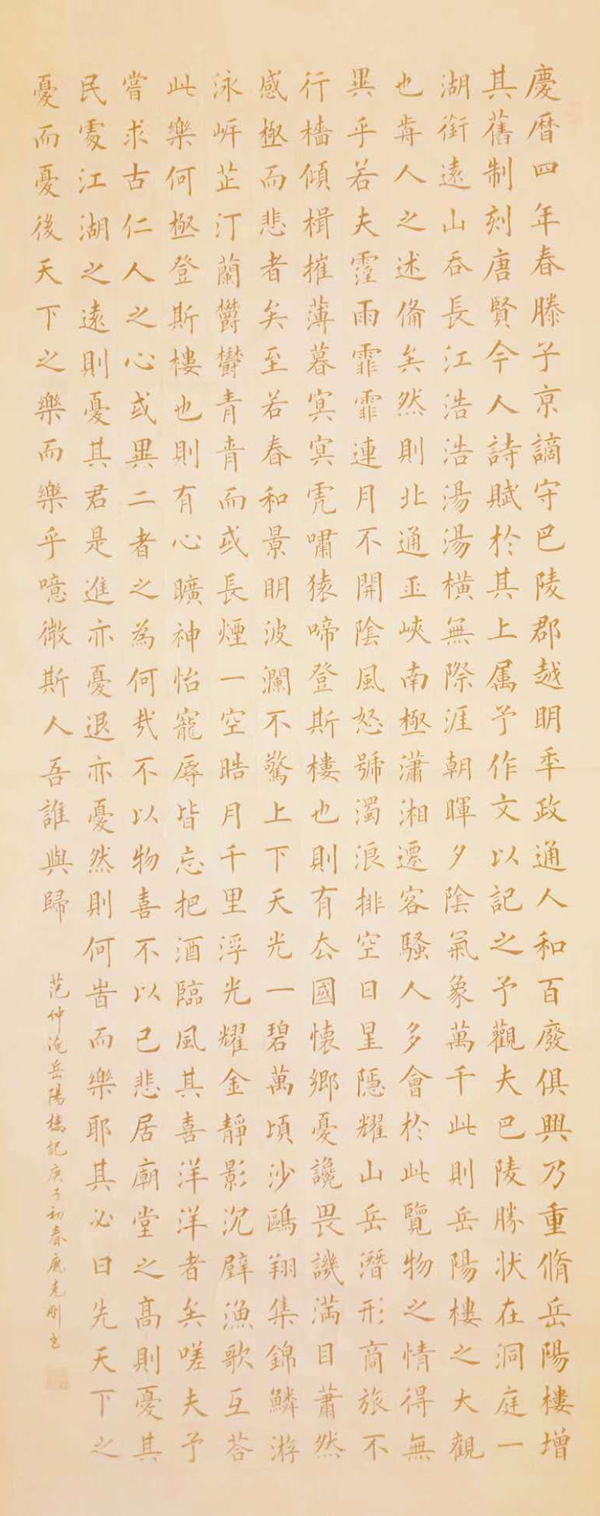 慶曆四年春滕子京謫守巴陵郡越明年政通人和百廢俱興乃重脩岳陽樓增
其舊制刻唐賢今人詩賦於其上属予作文以記之予觀夫巴陵勝狀在洞庭一
湖銜遠山吞長江浩浩湯湯橫無際涯朝暉夕陰氣象萬千此則岳陽樓之大觀
也歬人之述俻矣然則北通巫峽南極瀟湘遷客騷人多會於此覽物之情得無
異乎若夫霪雨霏霏連月不開陰風怒號濁浪排空日星隱耀山岳潛形商旅不
行檣傾楫摧薄暮冥冥虎嘯猿啼登斯樓也則有去國懷鄉憂讒畏譏滿目蕭然
感極而悲者矣至若春和景明波瀾不驚上下天光一碧萬頃沙鷗翔集錦鱗游
泳岸芷汀蘭欝欝青青而或長煙一空皓月千里浮光耀金靜影沉璧漁歌互荅
此樂何極登斯樓也則有心曠神怡寵辱皆忘把酒臨風其喜洋洋者矣嗟夫予
嘗求古仁人之心或異二者之為何哉不以物喜不以己悲居廟堂之高則憂其
民處江湖之遠則憂其君是進亦憂退亦憂然則何旹而樂耶其必曰先天下之
憂而憂後天下之樂而樂乎噫微斯人吾誰與歸
范仲淹岳陽樓記庚子初春克剛書